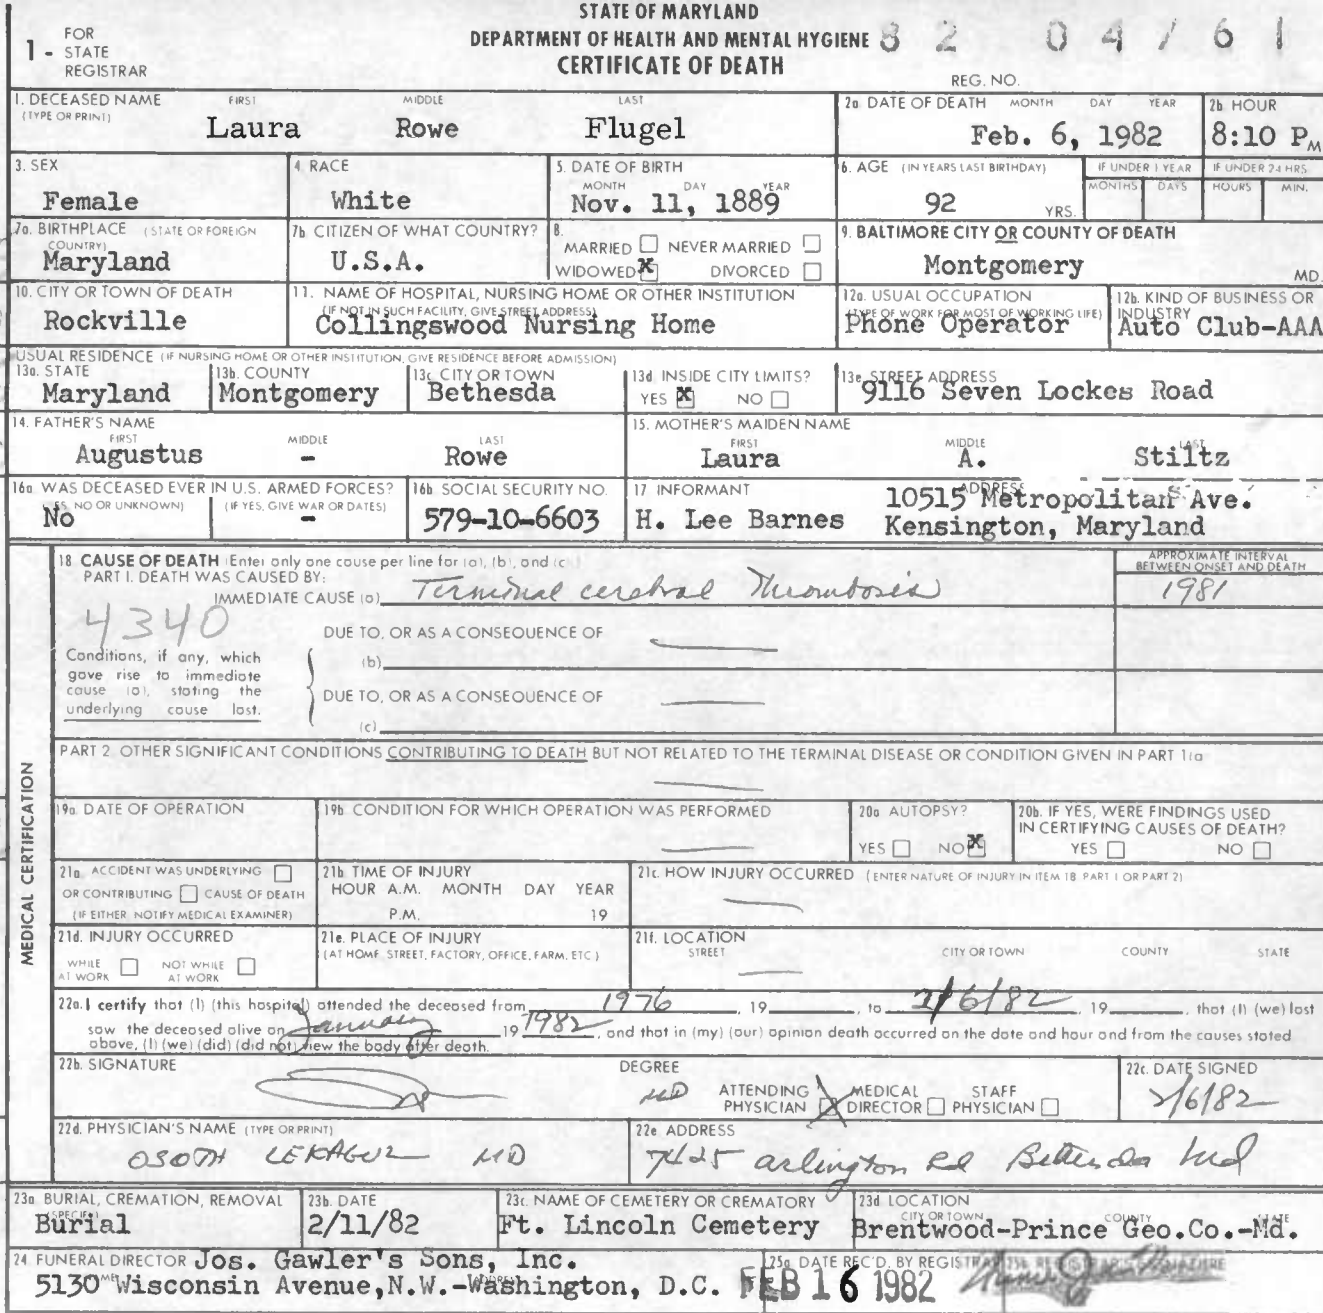 STATE OF MARYLAND
DEPARTMENT OF HEALTH AND MENTAL HYGIENE
CERTIFICATE OF DEATH
1 - FOR STATE REGISTRAR
82 04761
REG. NO.
1. DECEASED NAME (TYPE OR PRINT) FIRST MIDDLE LAST
Laura Rowe Flugel
2a DATE OF DEATH MONTH DAY YEAR
Feb. 6, 1982
2b HOUR
8:10 P M
3. SEX
Female
4. RACE
White
5. DATE OF BIRTH MONTH DAY YEAR
Nov. 11, 1889
6. AGE (IN YEARS LAST BIRTHDAY)
92 YRS.
IF UNDER 1 YEAR MONTHS DAYS
IF UNDER 24 HRS HOURS MIN.
7a. BIRTHPLACE (STATE OR FOREIGN COUNTRY)
Maryland
7b CITIZEN OF WHAT COUNTRY?
U.S.A.
8.
MARRIED NEVER MARRIED
WIDOWED X DIVORCED
9. BALTIMORE CITY OR COUNTY OF DEATH
Montgomery MD.
10. CITY OR TOWN OF DEATH
Rockville
11. NAME OF HOSPITAL, NURSING HOME OR OTHER INSTITUTION
(IF NOT IN SUCH FACILITY, GIVE STREET ADDRESS)
Collingswood Nursing Home
12a. USUAL OCCUPATION
(TYPE OF WORK FOR MOST OF WORKING LIFE)
Phone Operator
12b. KIND OF BUSINESS OR INDUSTRY
Auto Club-AAA
USUAL RESIDENCE (IF NURSING HOME OR OTHER INSTITUTION, GIVE RESIDENCE BEFORE ADMISSION)
13a. STATE
Maryland
13b. COUNTY
Montgomery
13c. CITY OR TOWN
Bethesda
13d INSIDE CITY LIMITS?
YES X NO
13e STREET ADDRESS
9116 Seven Lockes Road
14. FATHER'S NAME
FIRST MIDDLE LAST
Augustus - Rowe
15. MOTHER'S MAIDEN NAME
FIRST MIDDLE LAST
Laura A. Stiltz
16a WAS DECEASED EVER IN U.S. ARMED FORCES?
(YES, NO OR UNKNOWN) (IF YES, GIVE WAR OR DATES)
No -
16b SOCIAL SECURITY NO.
579-10-6603
17 INFORMANT
H. Lee Barnes
ADDRESS
10515 Metropolitan Ave.
Kensington, Maryland
MEDICAL CERTIFICATION
18 CAUSE OF DEATH (Enter only one cause per line for (a), (b), and (c).)
PART I. DEATH WAS CAUSED BY:
IMMEDIATE CAUSE (a) Terminal cerebral Thrombosis
APPROXIMATE INTERVAL BETWEEN ONSET AND DEATH
1981
4340
DUE TO, OR AS A CONSEQUENCE OF
(b)
Conditions, if any, which
gave rise to immediate
cause (a), stating the
underlying cause last.
DUE TO, OR AS A CONSEQUENCE OF
(c)
PART 2. OTHER SIGNIFICANT CONDITIONS CONTRIBUTING TO DEATH BUT NOT RELATED TO THE TERMINAL DISEASE OR CONDITION GIVEN IN PART 1(a
19a. DATE OF OPERATION
19b CONDITION FOR WHICH OPERATION WAS PERFORMED
20a AUTOPSY?
YES NO X
20b. IF YES, WERE FINDINGS USED
IN CERTIFYING CAUSES OF DEATH?
YES NO
21a. ACCIDENT WAS UNDERLYING
OR CONTRIBUTING CAUSE OF DEATH
(IF EITHER NOTIFY MEDICAL EXAMINER)
21b TIME OF INJURY
HOUR A.M. MONTH DAY YEAR
P.M. 19
21c. HOW INJURY OCCURRED (ENTER NATURE OF INJURY IN ITEM 18 PART 1 OR PART 2)
21d. INJURY OCCURRED
WHILE AT WORK NOT WHILE AT WORK
21e. PLACE OF INJURY
(AT HOME, STREET, FACTORY, OFFICE, FARM, ETC.)
21f. LOCATION
STREET CITY OR TOWN COUNTY STATE
22a. I certify that (I) (this hospital) attended the deceased from 1976, 19, to 2/6/82, 19, that (I) (we) last
saw the deceased alive on January 19 1982, and that in (my) (our) opinion death occurred on the date and hour and from the causes stated
above, (I) (we) (did) (did not) view the body after death.
22b. SIGNATURE
DEGREE
MD
ATTENDING PHYSICIAN X MEDICAL DIRECTOR STAFF PHYSICIAN
22c. DATE SIGNED
2/6/82
22d. PHYSICIAN'S NAME (TYPE OR PRINT)
OSOTH LEKAGUL MD
22e ADDRESS
7425 arlington Rd Bethesda Md
23a BURIAL, CREMATION, REMOVAL (SPECIFY)
Burial
23b. DATE
2/11/82
23c. NAME OF CEMETERY OR CREMATORY
Ft. Lincoln Cemetery
23d LOCATION
CITY OR TOWN COUNTY STATE
Brentwood-Prince Geo.Co.-Md.
24 FUNERAL DIRECTOR Jos. Gawler's Sons, Inc.
5130 Wisconsin Avenue,N.W.-Washington, D.C.
25a DATE REC'D. BY REGISTRAR
FEB 16 1982
25b. REGISTRAR'S SIGNATURE